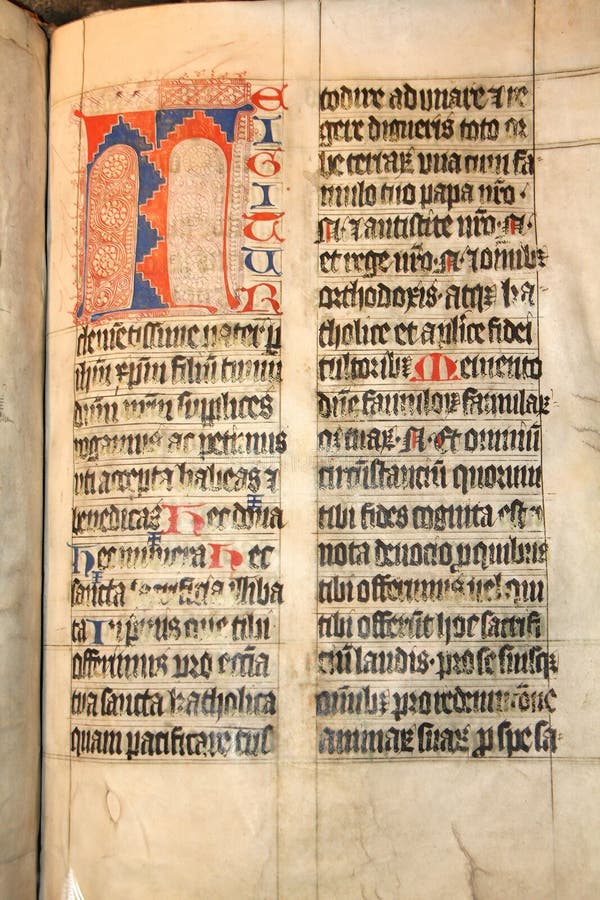 TE IGITUR
clementissime pater p
ihm xpm filiu tuum
dnm nrm supplices
rogamus ac petimus
uti accepta habeas ⁊
benedicas Hec dona
Hec munera Hec
sancta sacrificia illiba
ta In primis que tibi
offerimus pro eccia
tua sancta katholica
quam pacificare cus
todire adunare ⁊ re
gere digneris toto or
be terraꝝ una cum fa
mulo tuo papa nro ·
N · ⁊ antistite nro · N ·
et rege nro · N · ⁊ omnibꝫ
orthodoxis · atqꝫ ka
tholice et aplice fidei
cultoribꝫ Memento
dne famuloꝝ famulaꝝ
qꝫ tuaꝝ · N · Et omniu
circustanciu quorum
tibi fides cognita est ⁊
nota deuocio p quibus
tibi offerimus uel qui
tibi offerut hoc sacrifi
ciu laudis · pro se suisqꝫ
omibꝫ pro redempcione
animaꝝ suaꝝ p spe sa